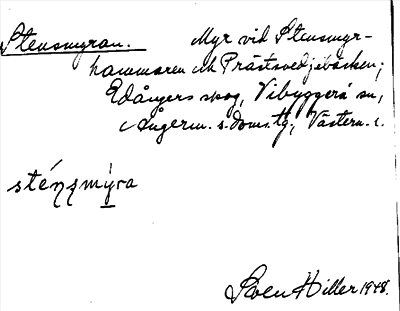 Stensmyran. Myr vid Stensmyr-
hammaren och Prästsvedjebäcken;
Edångers skog, Vibyggerå sn,
Ångerm. s. doms. tg, Västern. l.
sténsmýra
Sven Hiller 1948.